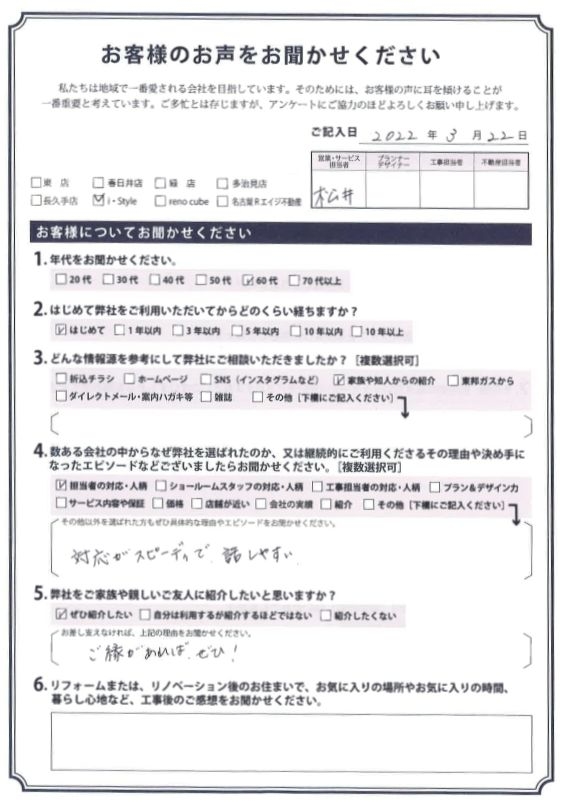 お客様のお声をお聞かせください
私たちは地域で一番愛される会社を目指しています。そのためには、お客様の声に耳を傾けることが
一番重要と考えています。ご多忙とは存じますが、アンケートにご協力のほどよろしくお願い申し上げます。
ご記入日 2022 年 3 月 22 日
営業・サービス担当者 プランナーデザイナー 工事担当者 不動産担当者
松井
□東 店 □春日井店 □緑 店 □多治見店
□長久手店 ☑i・Style □reno cube □名古屋Rエイジ不動産
お客様についてお聞かせください
1. 年代をお聞かせください。
□20代 □30代 □40代 □50代 ☑60代 □70代以上
2. はじめて弊社をご利用いただいてからどのくらい経ちますか？
☑はじめて □1年以内 □3年以内 □5年以内 □10年以内 □10年以上
3. どんな情報源を参考にして弊社にご相談いただきましたか？［複数選択可］
□折込チラシ □ホームページ □SNS（インスタグラムなど） ☑家族や知人からの紹介 □東邦ガスから
□ダイレクトメール・案内ハガキ等 □雑誌 □その他［下欄にご記入ください］
4. 数ある会社の中からなぜ弊社を選ばれたのか、又は継続的にご利用くださるその理由や決め手に
なったエピソードなどございましたらお聞かせください。［複数選択可］
☑担当者の対応・人柄 □ショールームスタッフの対応・人柄 □工事担当者の対応・人柄 □プラン&デザイン力
□サービス内容や保証 □価格 □店舗が近い □会社の実績 □紹介 □その他［下欄にご記入ください］
その他以外を選ばれた方もぜひ具体的な理由やエピソードをお聞かせください。
対応がスピーディで、話しやすい
5. 弊社をご家族や親しいご友人に紹介したいと思いますか？
☑ぜひ紹介したい □自分は利用するが紹介するほどではない □紹介したくない
お差し支えなければ、上記の理由をお聞かせください。
ご縁があれば、ぜひ！
6. リフォームまたは、リノベーション後のお住まいで、お気に入りの場所やお気に入りの時間、
暮らし心地など、工事後のご感想をお聞かせください。